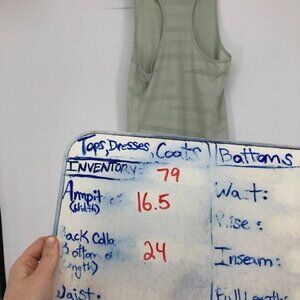 Tops, Dresses, Coats
INVENTORY: 79
Armpit
(Width)
16.5
Back Colla
Bottom of
Length)
24
Waist:
Bottoms
Waist:
Rise:
Inseam:
Full Length